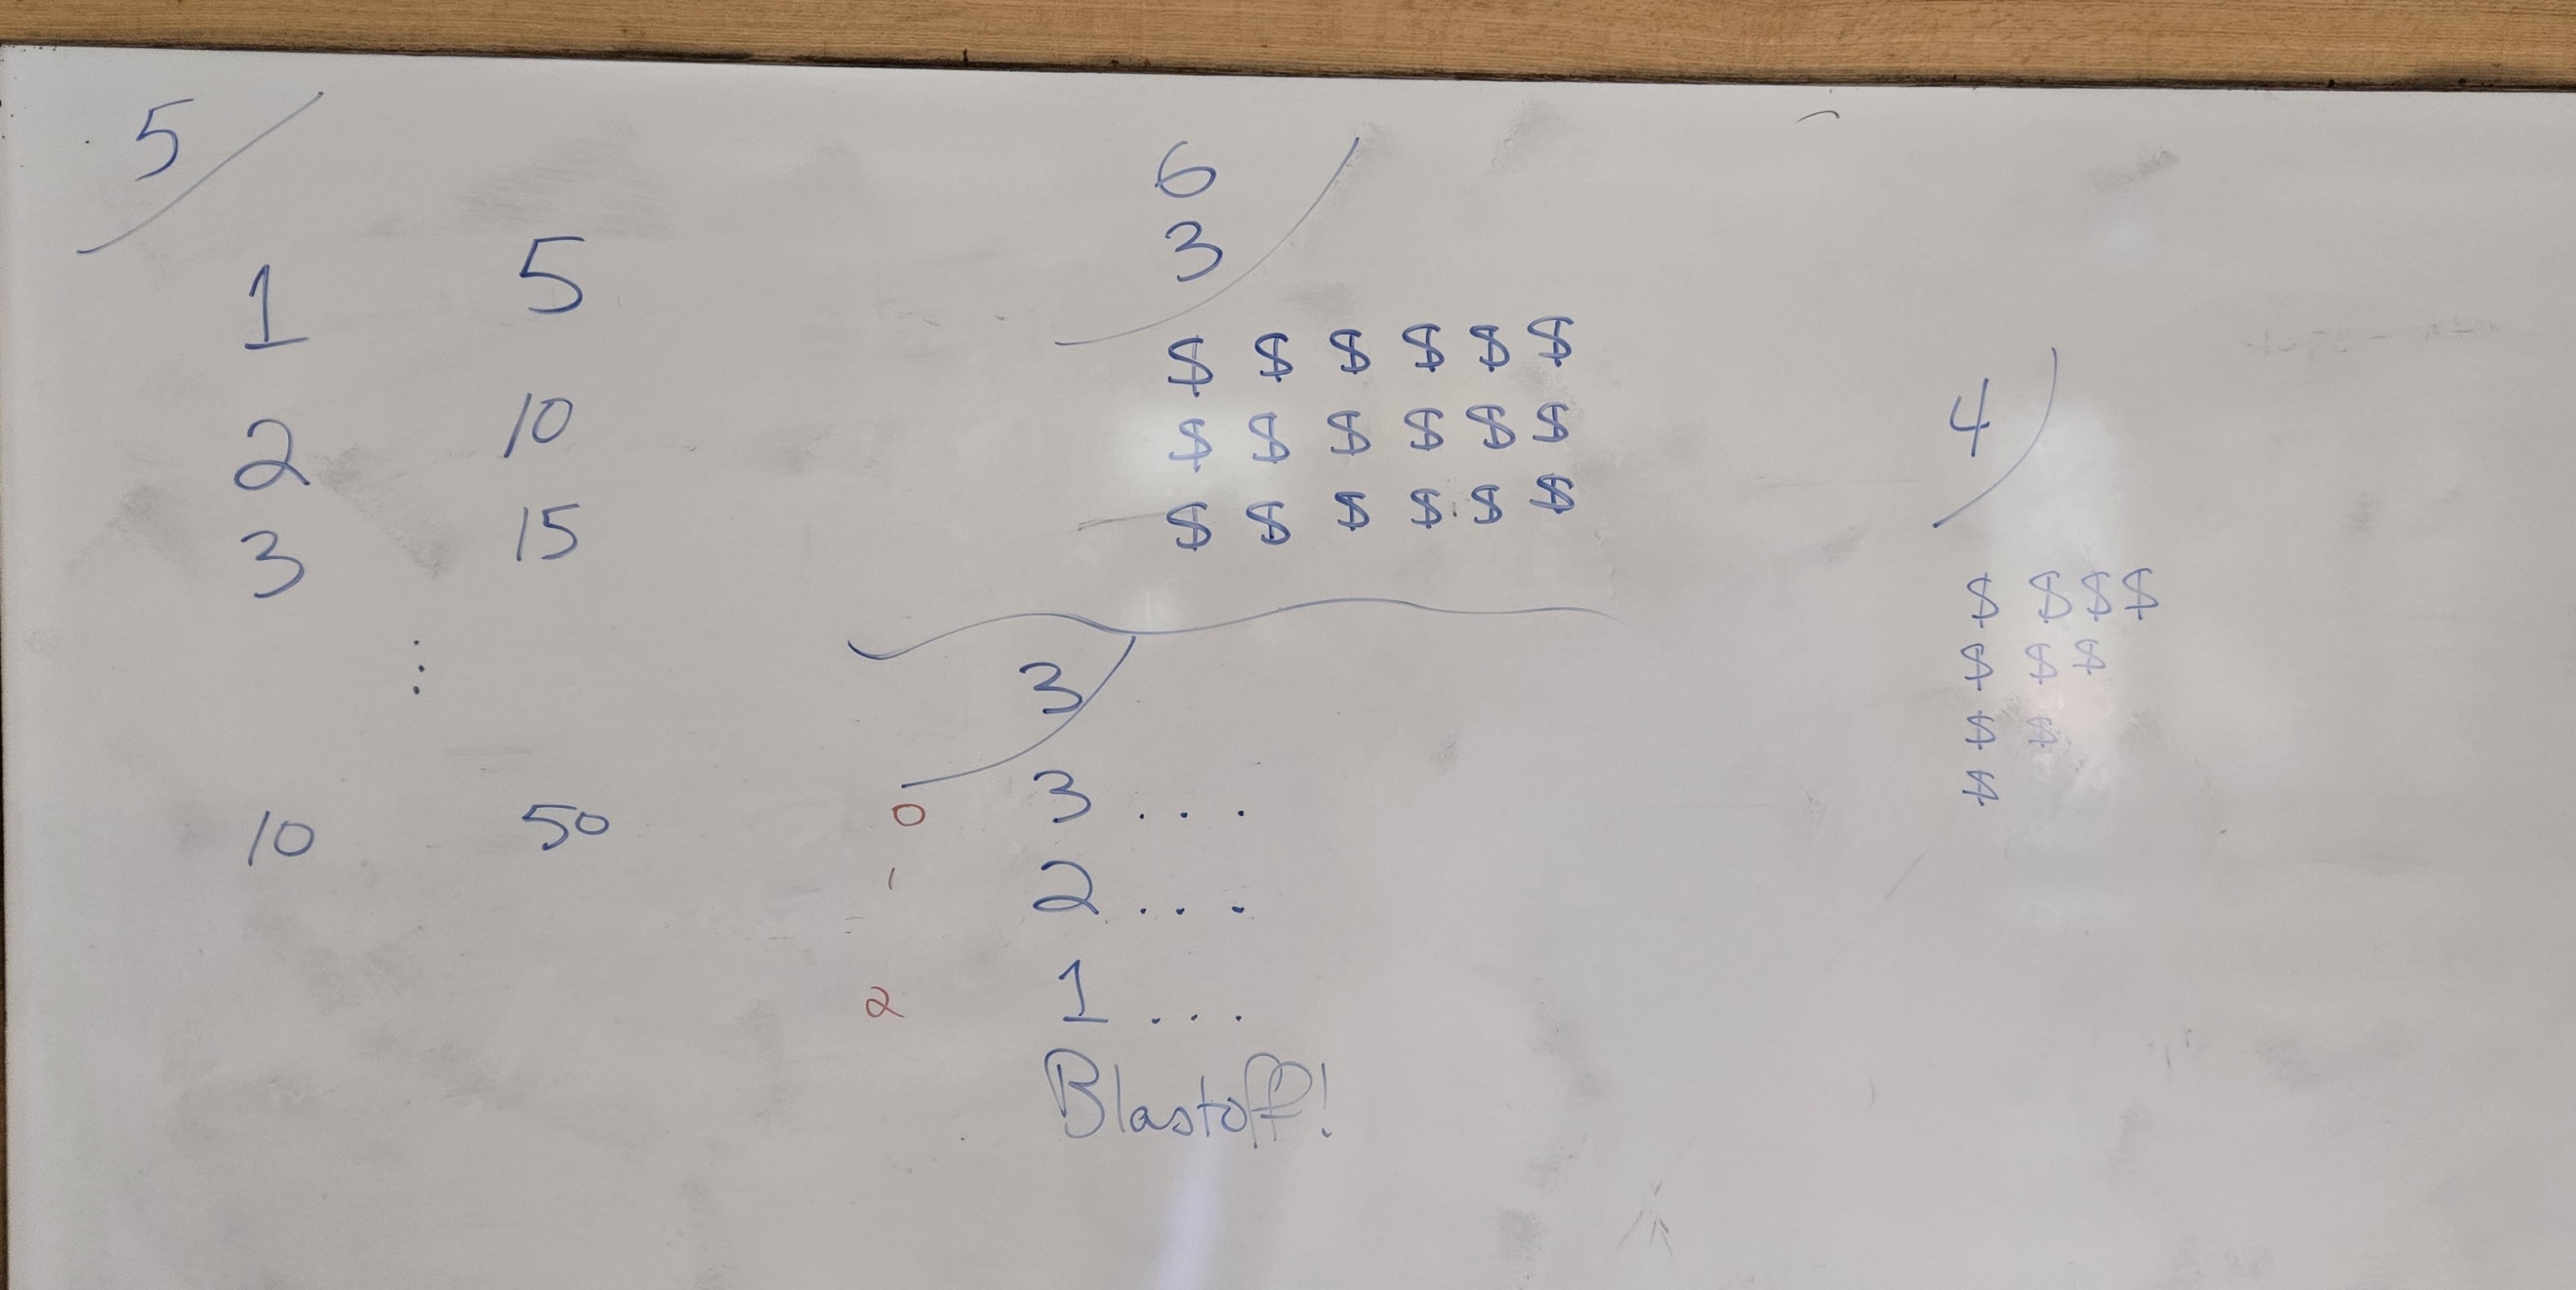 5
1 5
2 10
3 15
⋮
10 50
6
3
$ $ $ $ $ $
$ $ $ $ $ $
$ $ $ $ $ $
3
0 3 . . .
1 2 . . .
2 1 . . .
Blastoff!
4
$ $ $ $
$ $ $
$ $
$